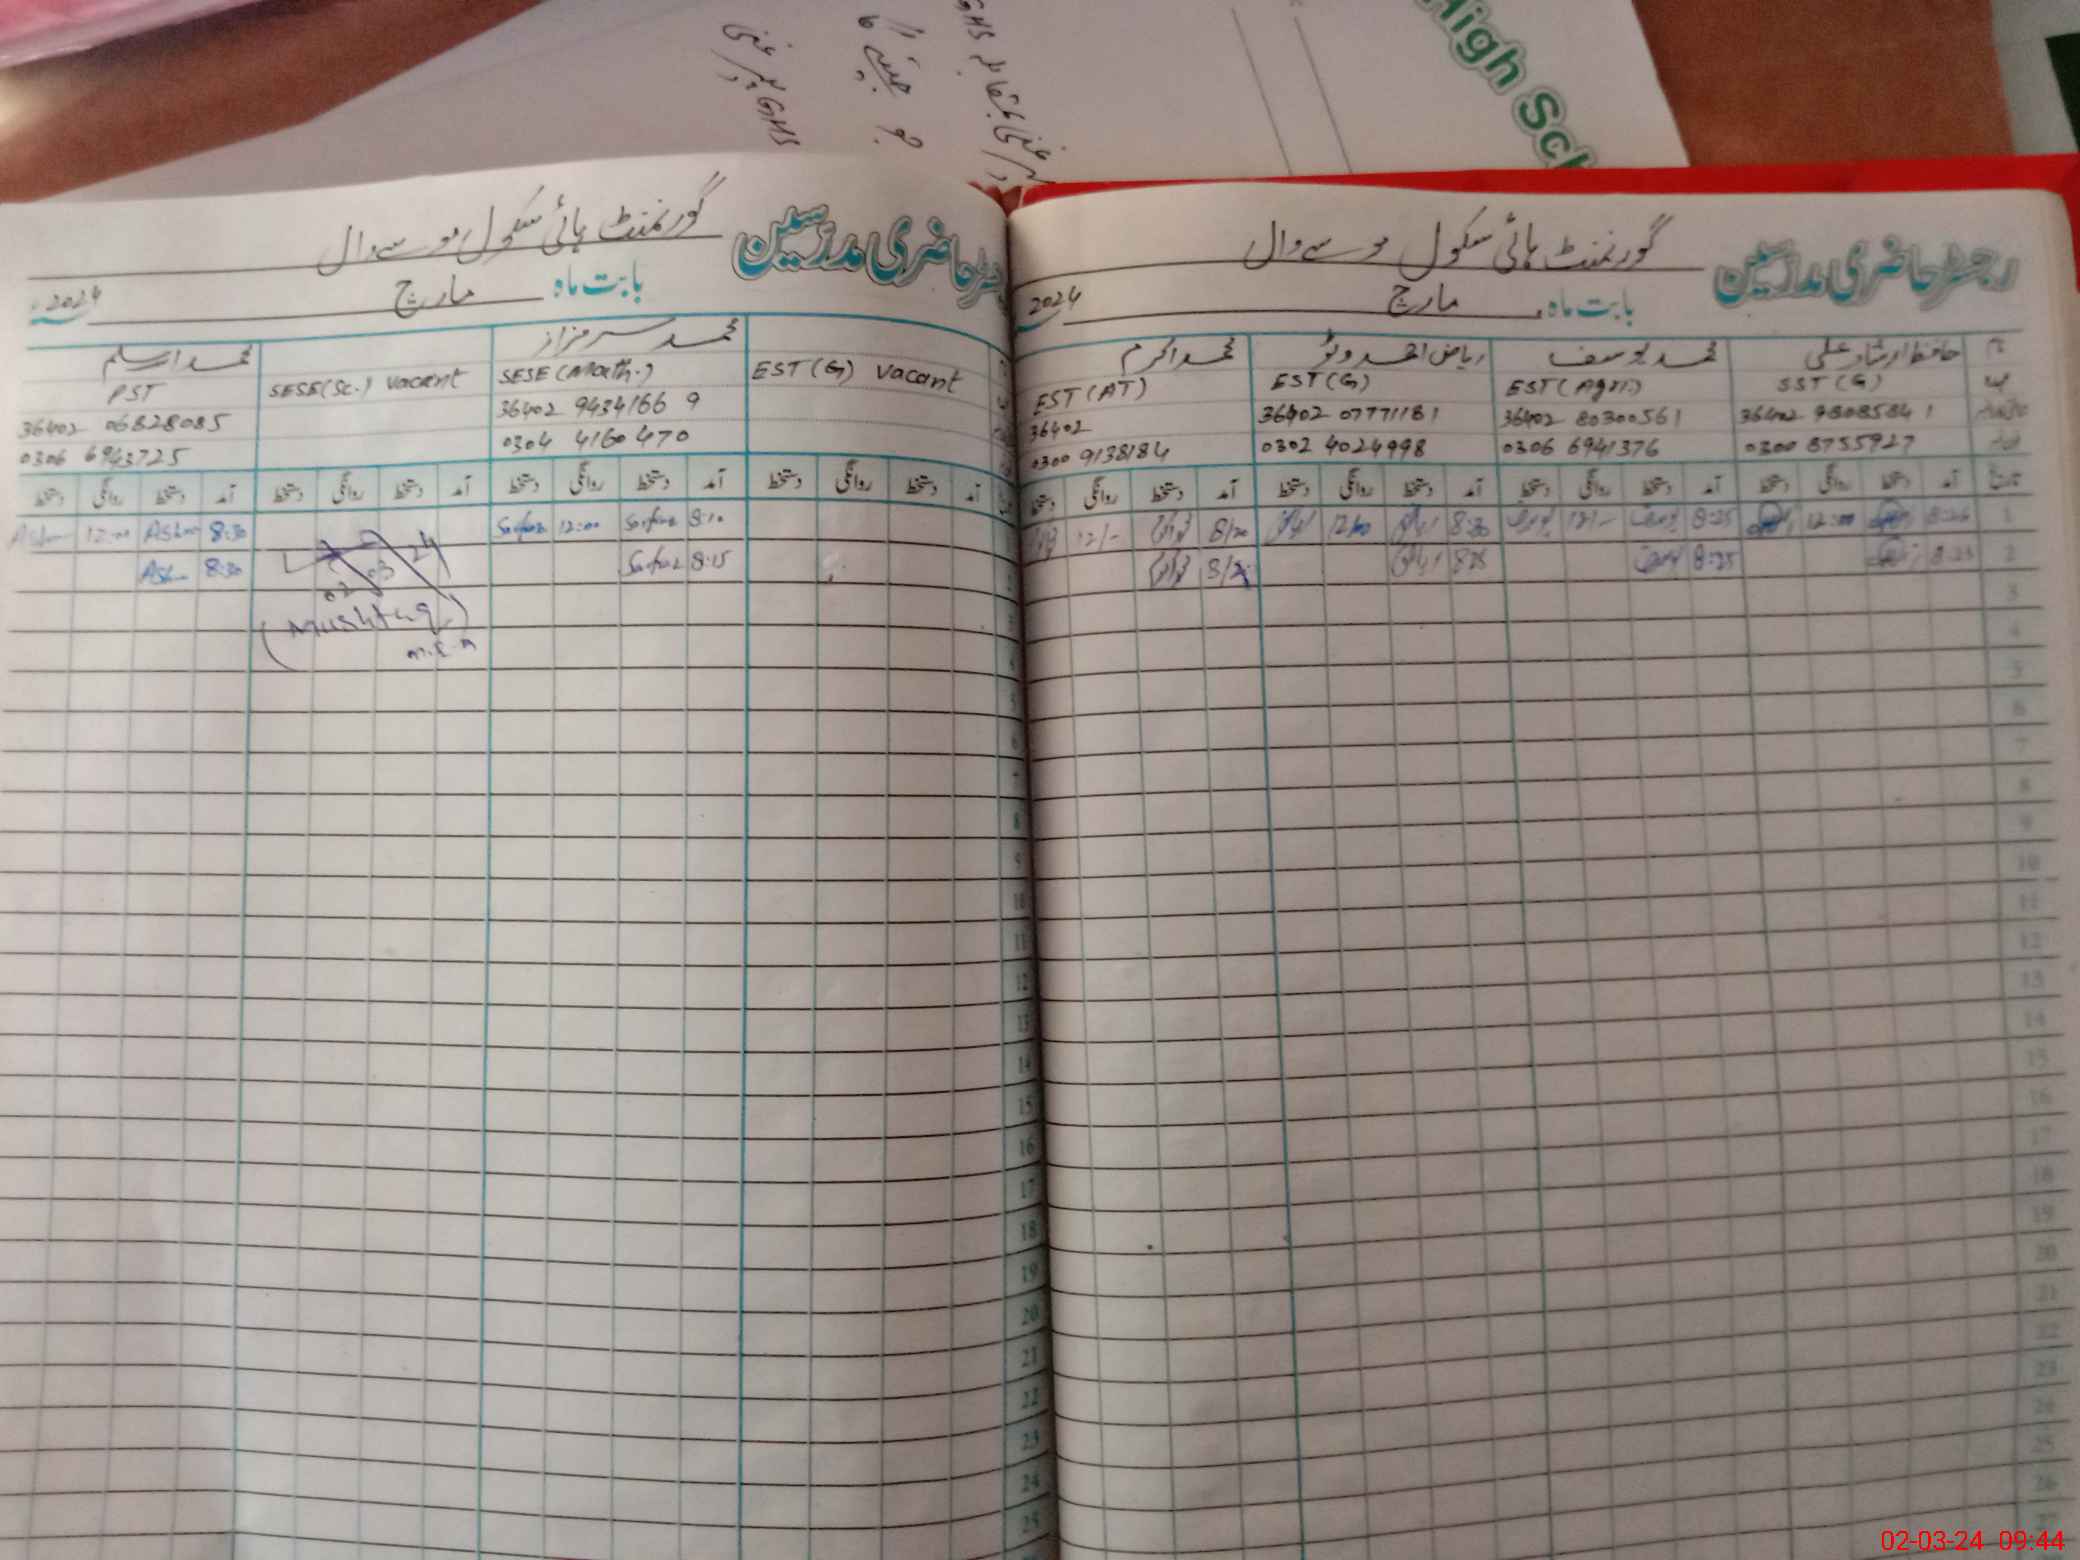 High Sch
GHS
GHS
رجسٹر حاضری مدرسین گورنمنٹ ہائی سکول موسے وال
بابت ماہ مارچ 2024
نام حافظ ارشاد علی محمد یوسف ریاض احمد وٹو محمد اکرم
SST (G) EST (Agri.) EST (G) EST (AT)
36402 9808584 1 36402 80300561 36402 07771181 36402
0300 8755927 0306 6941376 0302 4024998 0300 9138184
تاریخ آمد دستخط روانگی دستخط آمد دستخط روانگی دستخط آمد دستخط روانگی دستخط آمد دستخط روانگی دستخط
1 12:00 8:25 12/- 8:30 12/00 8/20 12/-
2 8:25 8:25 8:25
3
4
5
6
7
8
9
10
11
12
13
14
15
16
17
18
19
20
21
22
23
24
25
26
27
رجسٹر حاضری مدرسین گورنمنٹ ہائی سکول موسے وال
بابت ماہ مارچ 2024
محمد سرفراز محمد اسلم
EST (G) vacant SESE (Math.) SESE (Sc.) vacant PST
36402 9434166 9 36402 06828085
0304 4160470 0306 6943725
آمد دستخط روانگی دستخط آمد دستخط روانگی دستخط آمد دستخط روانگی دستخط آمد دستخط روانگی دستخط
8:10 Sarfraz 12:00 Sarfraz 8:30 Aslam 12:00 Aslam
8:15 Sarfraz 02 03 24 8:30 Aslam
(Mushtaq)
m.E.A
5
6
7
8
9
10
11
12
13
14
15
16
17
18
19
20
21
22
23
24
25
02-03-24 09:44